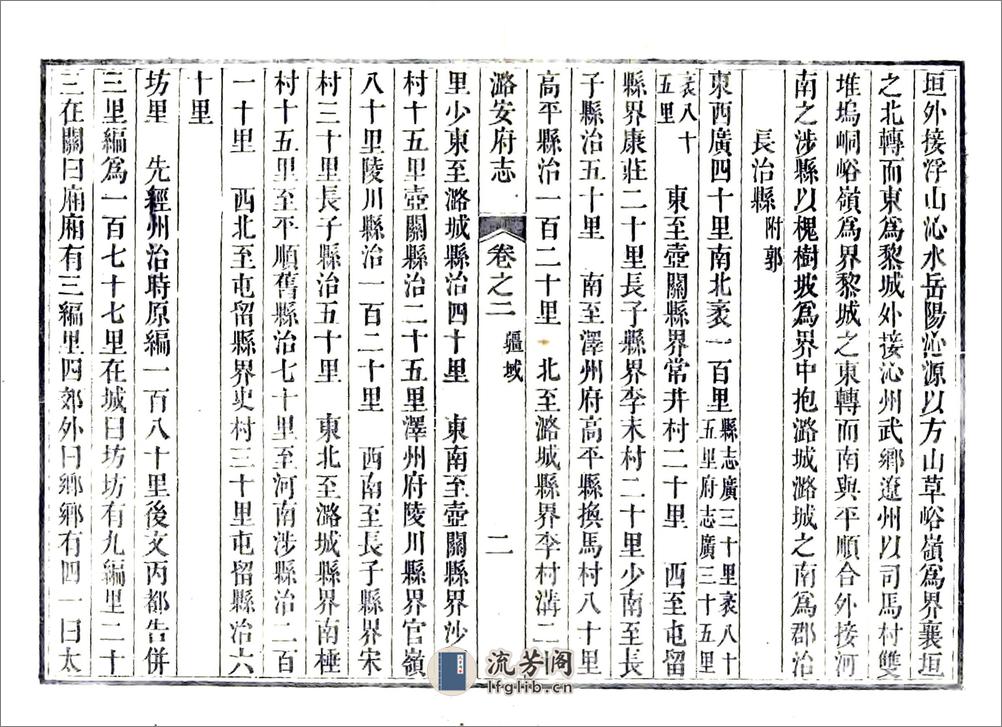 垣外接浮山沁水岳陽沁源以方山草峪嶺爲界襄垣
之北轉而東爲黎城外接沁州武鄉遼州以司馬村雙
堆塢峒峪嶺爲界黎城之東轉而南與平順合外接河
南之涉縣以槐樹坡爲界中抱潞城潞城之南爲郡治
長治縣附郭
東西廣四十里南北袤一百里縣志廣三十里袤八十
五里府志廣三十五里
袤八十
五里 東至壺關縣界常井村二十里 西至屯留
縣界康莊二十里長子縣界李末村二十里少南至長
子縣治五十里 南至澤州府高平縣換馬村八十里
高平縣治一百二十里 北至潞城縣界李村溝二
潞安府志 卷之三 疆域 二
里少東至潞城縣治四十里 東南至壺關縣界沙
村十五里壺關縣治二十五里澤州府陵川縣界官嶺
八十里陵川縣治一百二十里 西南至長子縣界宋
村三十里長子縣治五十里 東北至潞城縣界南極
村十五里至平順舊縣治七十里至河南涉縣治二百
一十里 西北至屯留縣界史村三十里屯留縣治六
十里
坊里 先經州治時原編一百八十里後文丙都告併
三里編爲一百七十七里在城曰坊坊有九編里二十
三在關曰廂廂有三編里四郊外曰鄉鄉有四一曰太
流芳阁
lfglib.cn